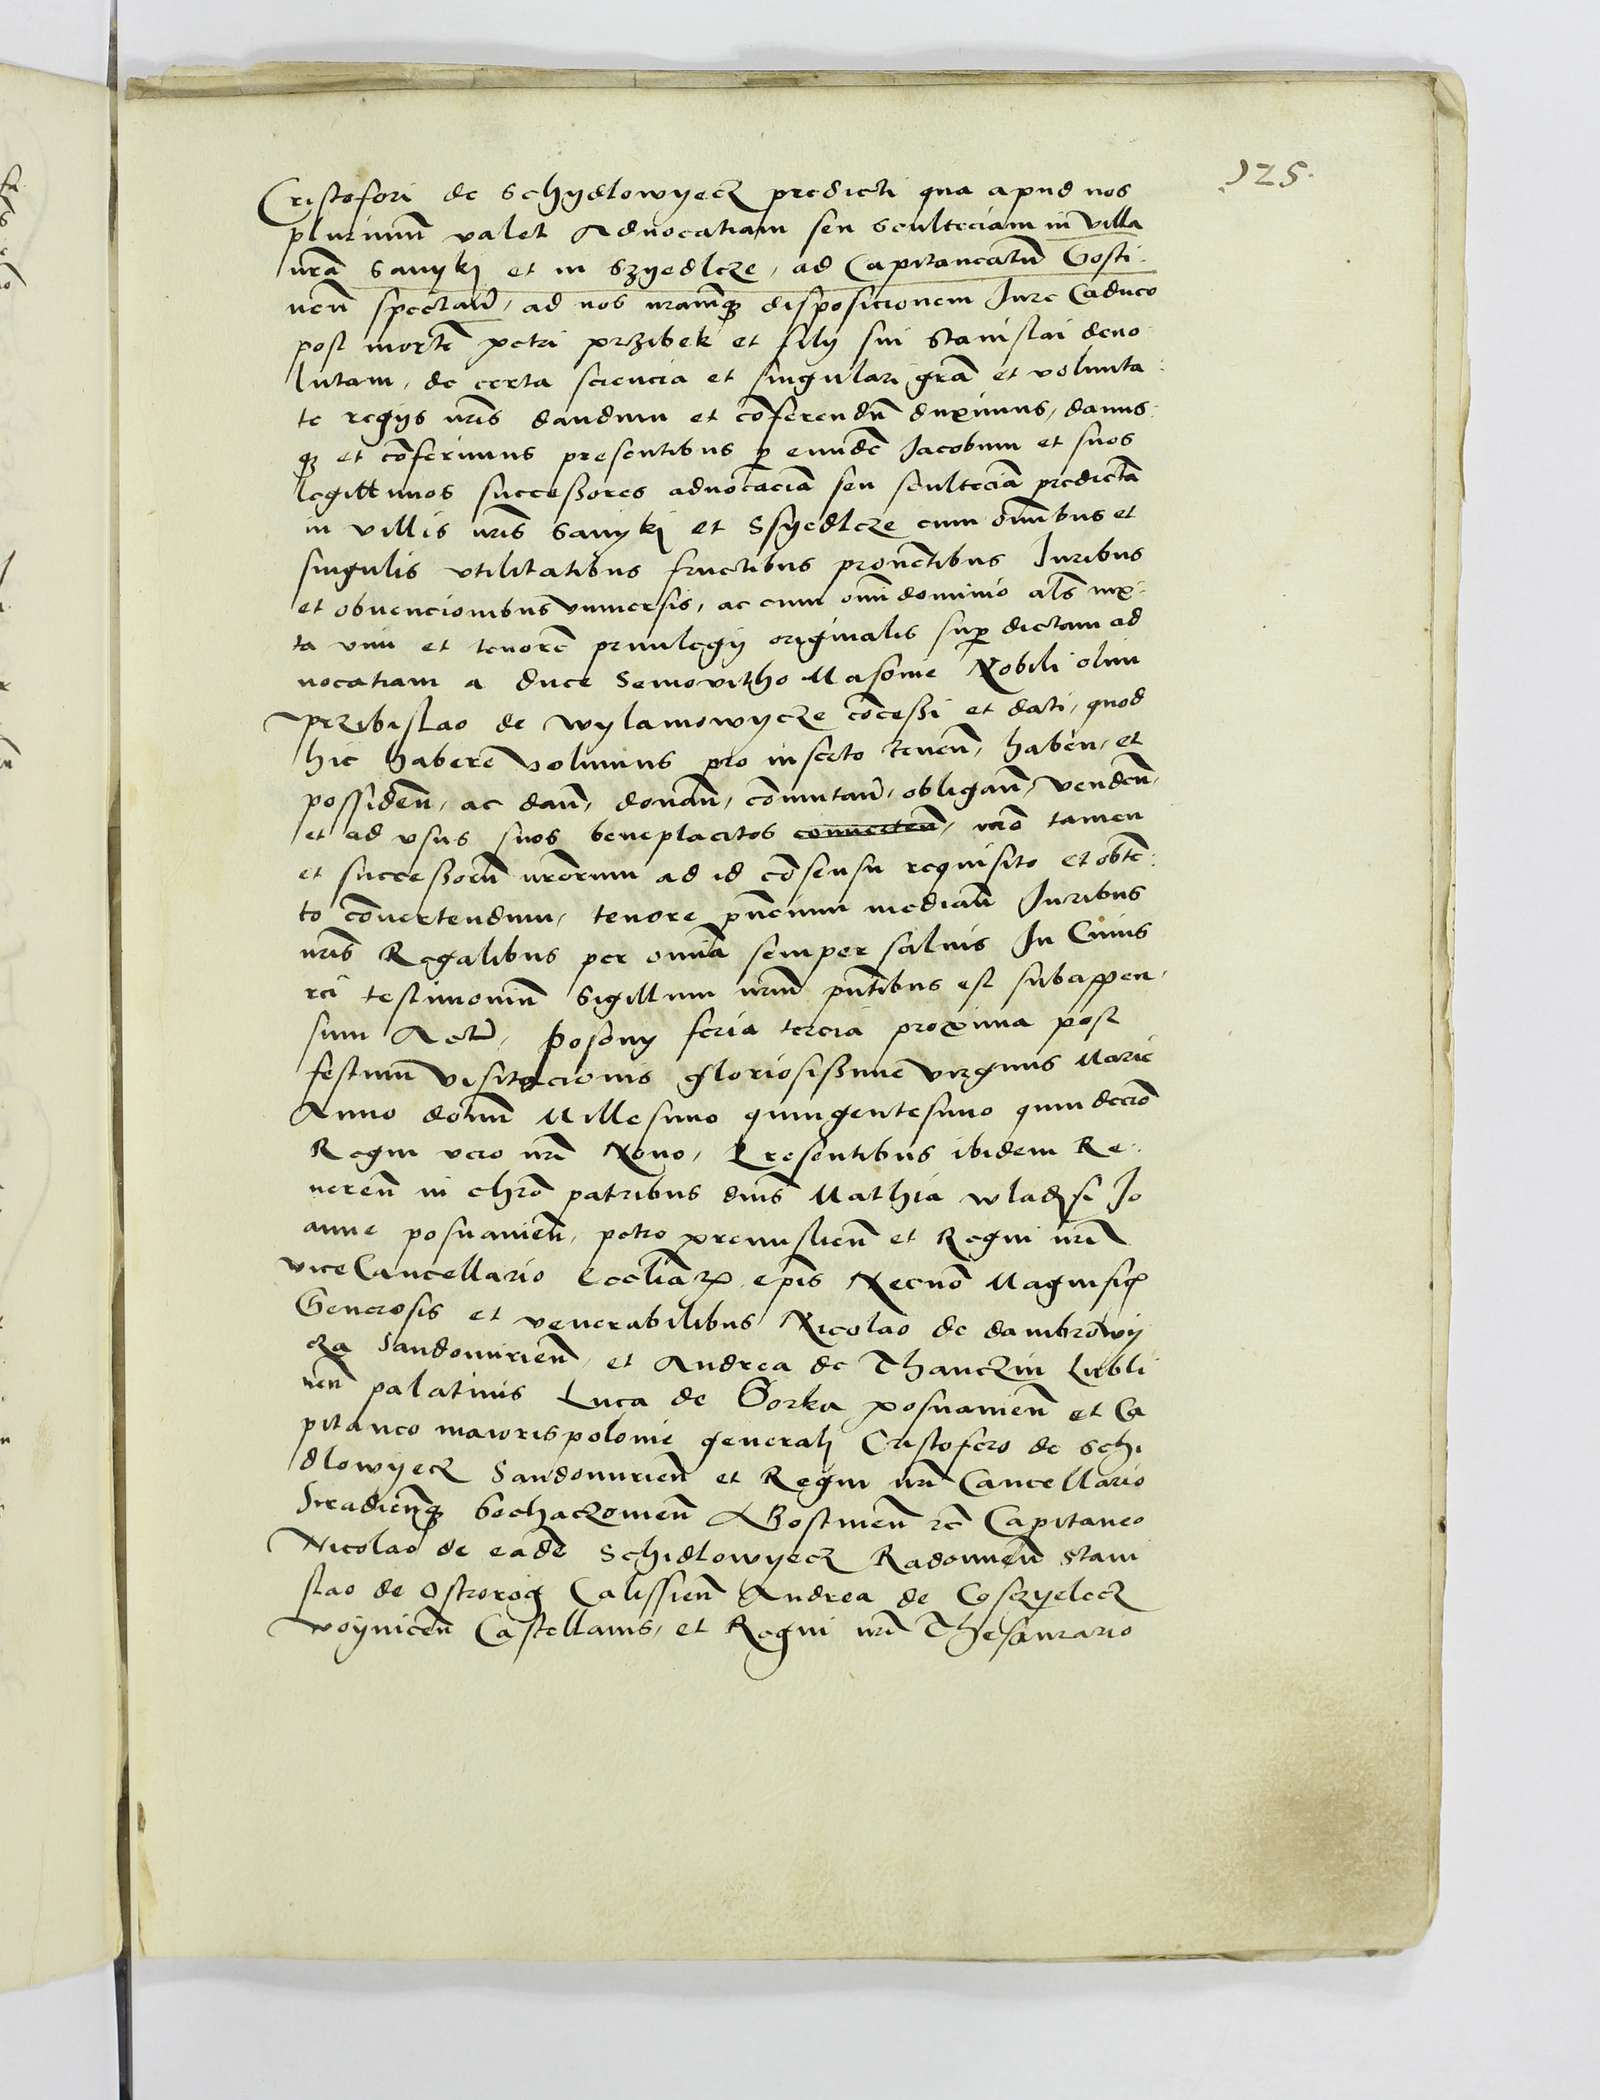 125.
Cristofori de Schydlowyecz predicti qua apud nos
plurimum valet Advocatiam seu Sculteciam in villa
nrã Sanykj et in Szyedlcze, ad Capitaneatũ Gosti-
nen̄ spectan̄, ad nos nramq̃ disposicionem Jure Caduco
post mortẽ petri przibek et filij sui Stanislai deuo
lutam, de certa sciencia et singulari grã et volunta-
te regijs nr̃is dandum et cõferendũ duximus, damus-
q̃ et cõferimus presentibus p̱ eundẽ Jacobum et suos
legittimos successores aduocaciã seu sculteciã predictã
in villis nr̃is Sanykj et Ssyedlcze cum om̃ibus et
singulis vtilitatibus fructibus prouẽtibus Juribus
et obuencionibus vniuersis, ac cum om̃i dominio al̃s iux-
ta vim et tenorẽ priuilegij originalis sup̱ dictam ad
uocatiam a duce Semovitho Masouie Nobili olim
przibislao de wylamowycze cõcessi et dati, quod
hic habere volumus pro inserto tenen̄, haben̄, et
possiden̄, ac dan̄, donan̄, cõmutan̄, obligan̄, venden̄,
et ad vsus suos beneplacitos conuerten̄, nr̃o tamen
et successorũ nrõrum ad id cõsensu requisito et obtẽ-
to cõuertendum, tenore pñcium median̄ Juribus
nr̃is Regalibus per om̃ia semper saluis In Cuius
rei testimoniũ Sigillum nrũm pñtibus est subappen-
sum Actũ, Posony feria tercia proxima post
festum visitacionis gloriosissime virginis Marie
Anno domi Millesimo quingentesimo quindecĩo
Regni vero nr̃i Nono, Presentibus ibidem Re-
ueren̄ in chr̃o patribus dñis Mathia wladisl Jo
anne posnanien̄, petro premislien̄ et Regni nr̃i
viceCancellario Eccliãrꝝ ep̃is Necnõ Magnific̃
Generosis et venerabilibus Nicolao de dambrowy
cza Sandomirien̄, et Andrea de Thanczin Lubli
nen̄ palatinis Luca de Gorka posnanien̄ et Ca
pitaneo maiorispolonie generalj Cristofero de Schi
dlowyecz Sandomirien̄ et Regni nr̃i Cancellario
Siradienq̃ Sochaczouien̄ Gostinen̄ etc̃ Capitaneo
Nicolao de eadẽ Schidlowyecz Radomien̄ Stani
slao de Ostrorog Calissien̄ Andrea de Cosczyelecz
woynicen̄ Castellanis, et Regni nr̃i Thesaurario